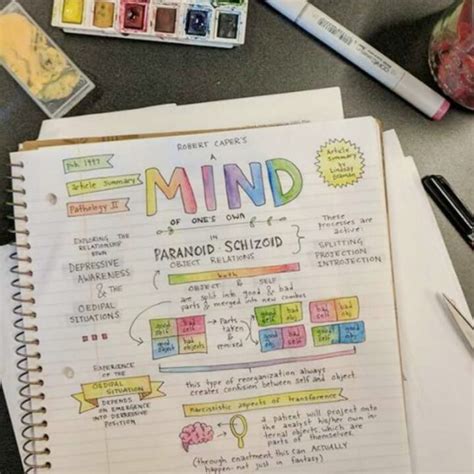 ROBERT CAPER'S
A
MIND
OF ONE'S OWN
Pub. 1997
Article Summary
Pathology II
Article
Summary
by
Lindsay
EXPLORING THE
RELATIONSHIP
BETWEEN
DEPRESSIVE
AWARENESS
& THE
OEDIPAL
SITUATIONS
IN
PARANOID-SCHIZOID
OBJECT RELATIONS
both
OBJECT & SELF
are split into good & bad
parts & merged into new combos
These
processes are
active:
SPLITTING
PROJECTION
INTROJECTION
good self
bad self
good object
bad objects
→ Parts →
taken
&
remixed
good self
bad obj.
bad self
good
this type of reorganization always
creates confusion between self and object.
EXPERIENCE
OF THE
OEDIPAL SITUATION
DEPENDS
ON EMERGENCE
INTO DEPRESSIVE
POSITION
Narcissistic aspects of transference
a patient will project onto
the analyst his/her own in-
ternal objects, which are
parts of themselves.
(through enactment, this can ACTUALLY
happen - not just in fantasy)